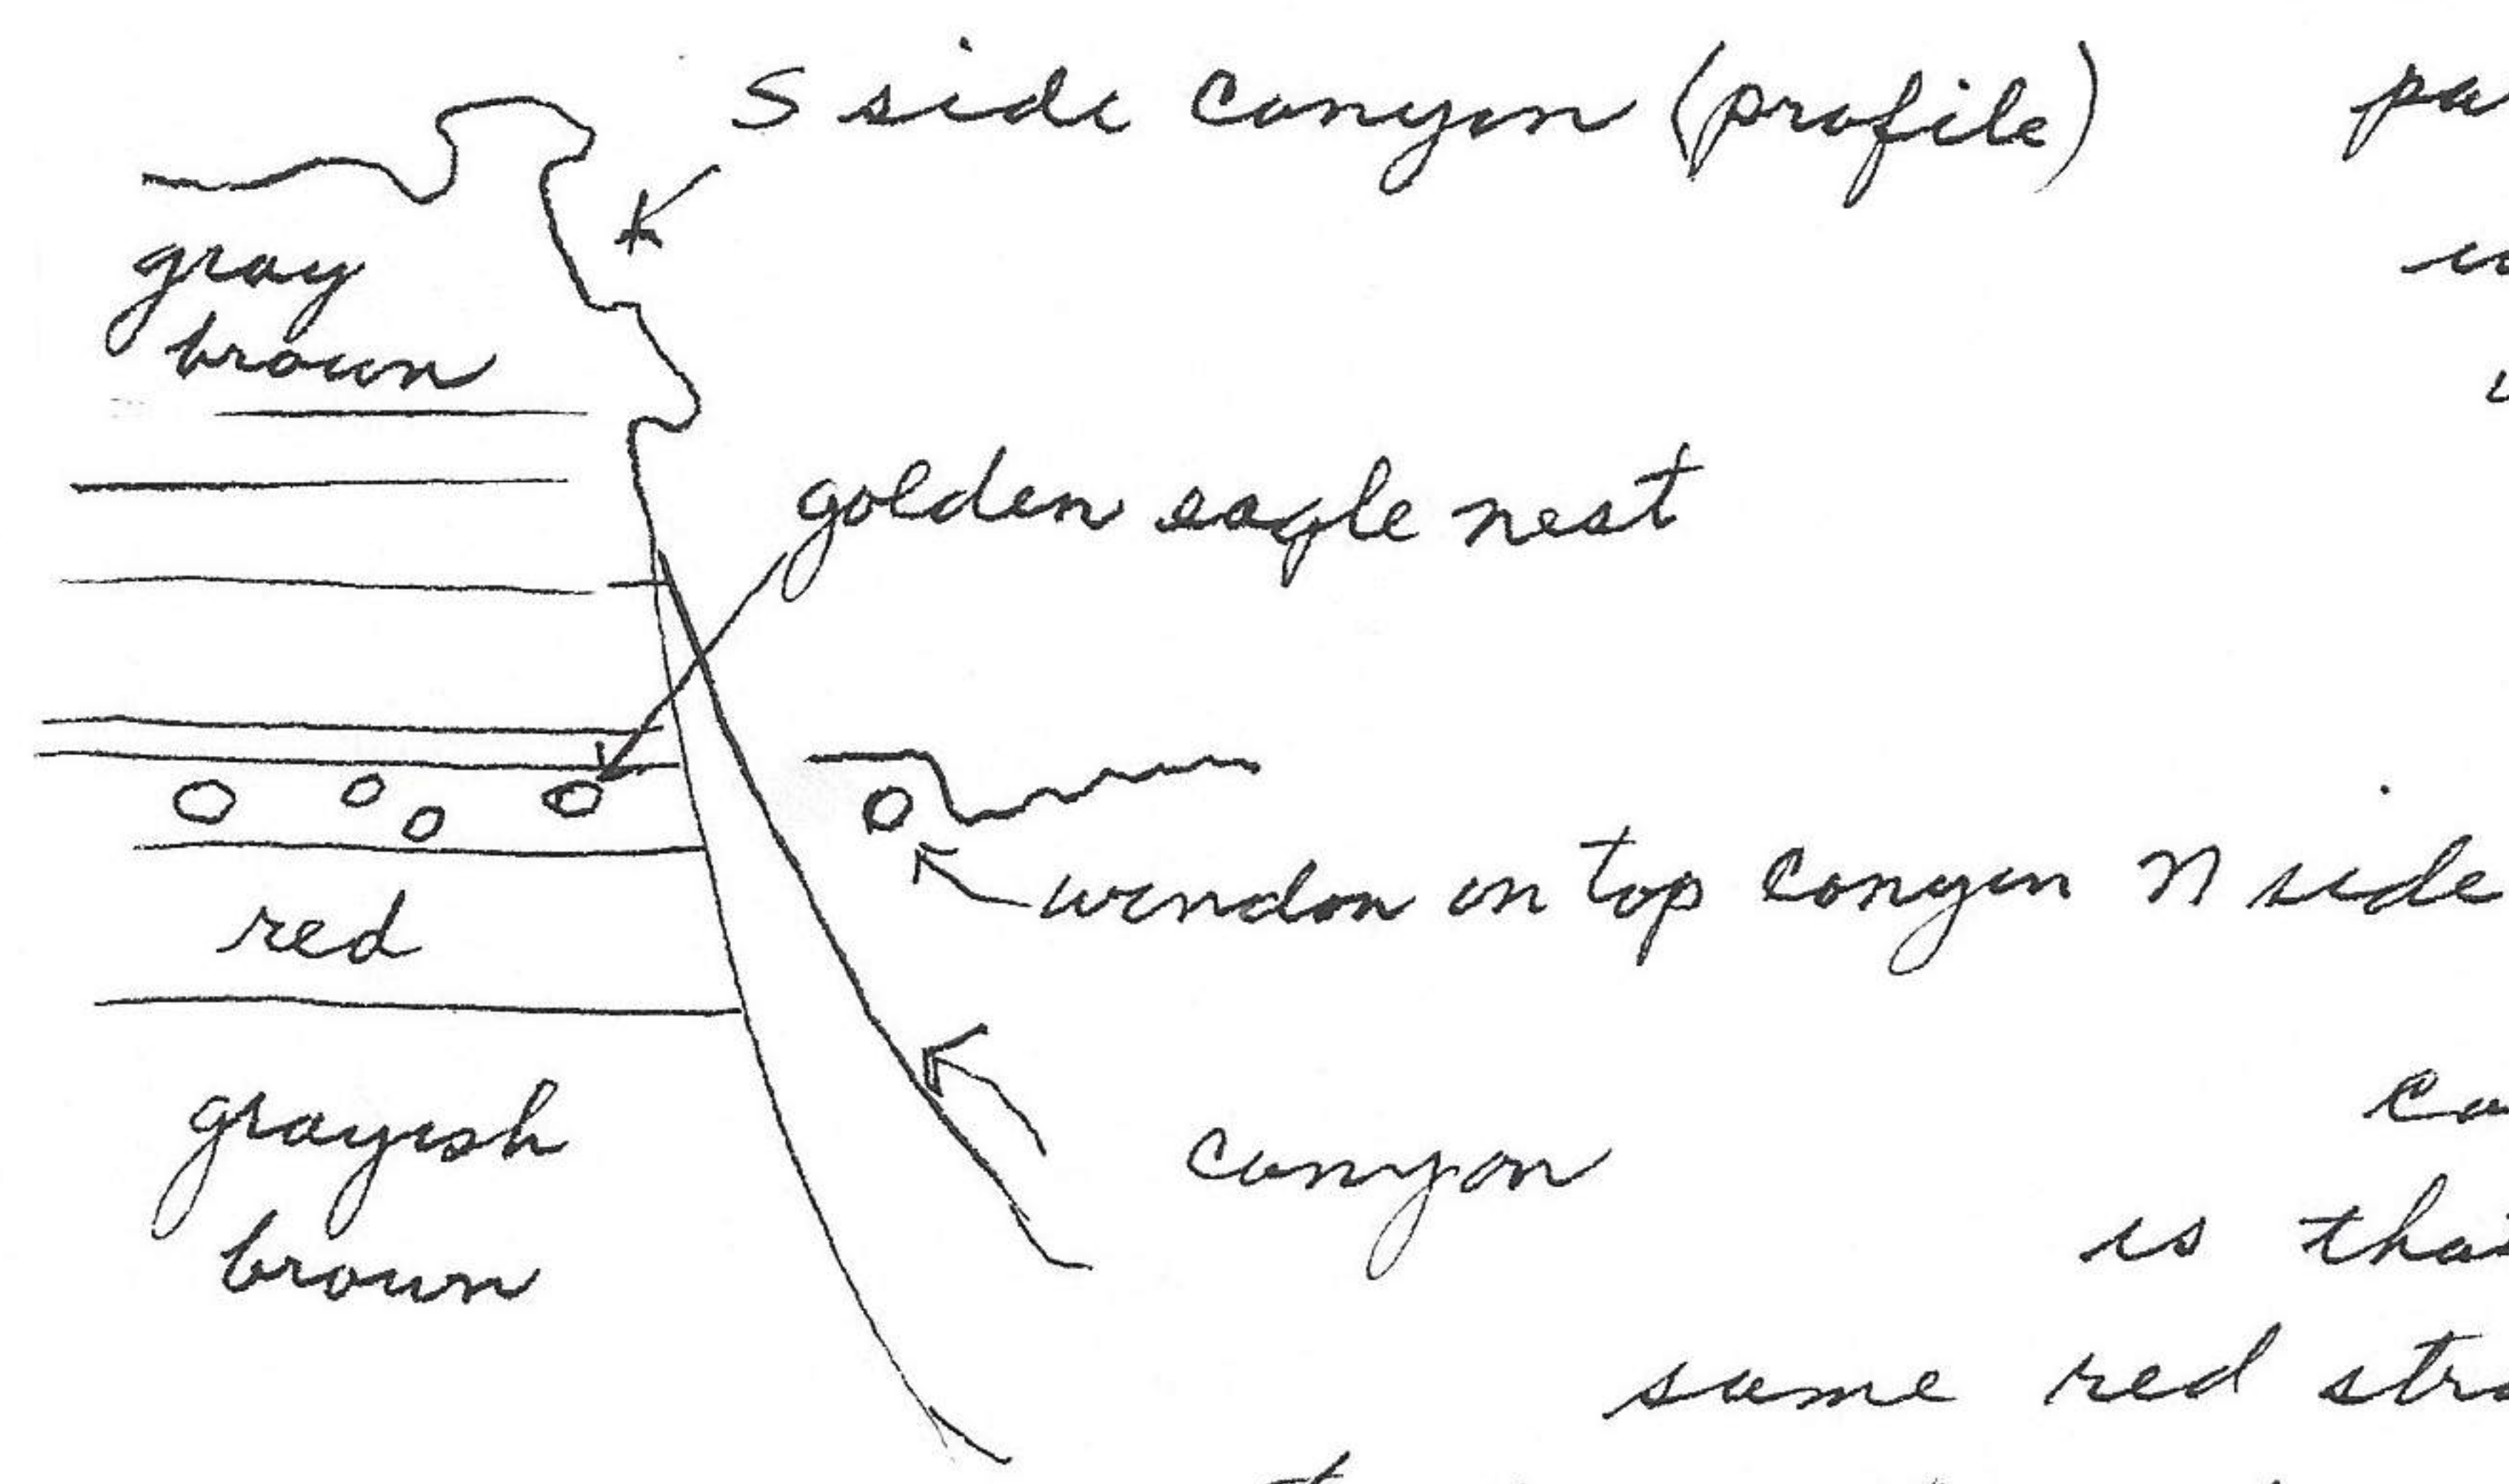 S side canyon (profile)
gray
brown
golden eagle nest
window on top canyon N side
red
canyon
grayish
brown
is
same red